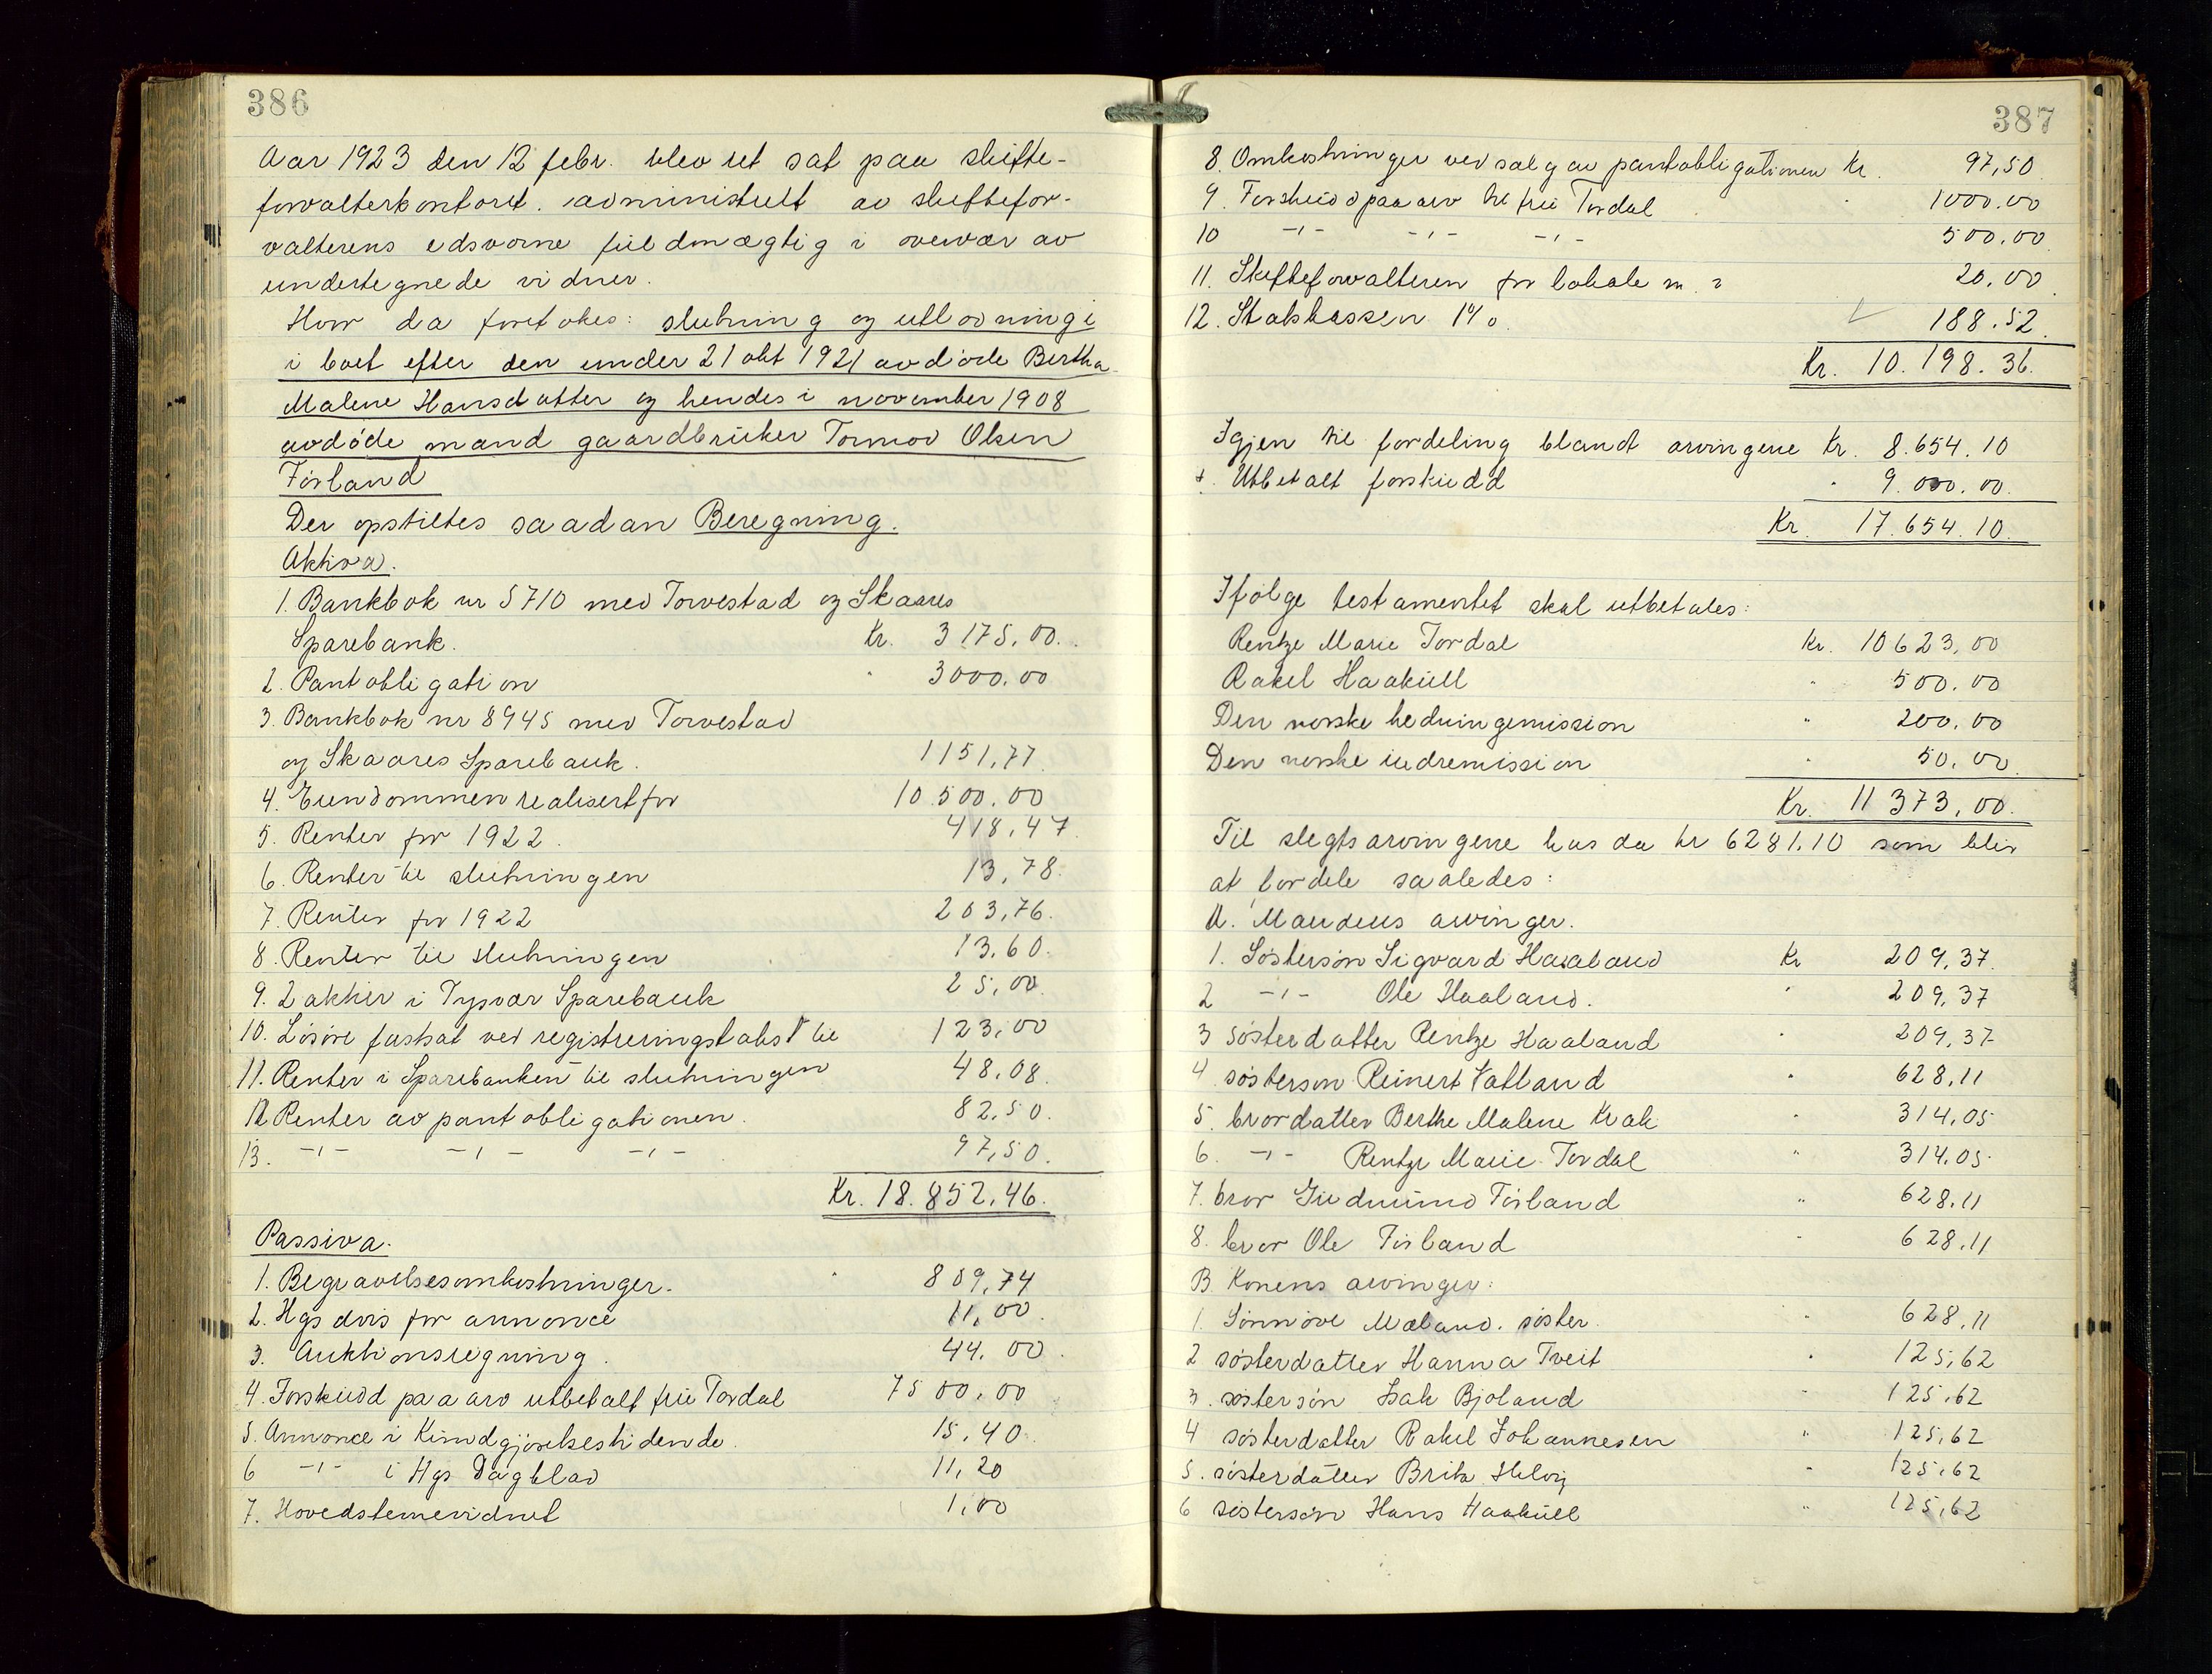 386
Aar 1923 den 12 febr. blev ret sat paa skifte-
forvalterkontoret. administrert av skiftefor-
valterens edsvorne fuldmægtig i overvær av
undertegnede vidner.
Hvor da foretokes: slutning og utlodning i
i boet efter den under 21 okt 1921 avdöde Bertha
Malene Hansdatter og hendes i november 1908
avdöde mand gaardbruker Tormod Olsen
Førland
Der opstiltes saadan Beregning.
Aktiva.
1. Bankbok nr 5710 med Torvestad og Skaares
Sparebank. Kr. 3175,00.
2. Pantobligation " 3000.00
3. Bankbok nr 8945 med Torvestad
og Skaares Sparebank. 1151,77
4. Eiendommen realisert for 10.500.00
5. Renter for 1922. 418,47
6. Renter til slutningen 13,78.
7. Renter for 1922 203,76.
8. Renter til slutningen 13.60.
9. 2 aktier i Tysvær Sparebank 25,00.
10. Løsøre fastsat ved registreringstakst til 123,00
11. Renter i Sparebanken til slutningen 48.08.
12 Renter av pantobligationen. 82,50.
13. -"- -"- -"- 97,50.
Kr. 18.852,46.
Passiva.
1. Begravelsesomkostninger. " 809,74
2. Hgs avis for annonce 11,00.
3. Auktionsregning. 44.00.
4. Forskudd paa arv utbetalt fru Tordal 7500,00
5. Annonce i Kundgjørelsestidende. 15,40.
6 -"- i Hgs Dagblad 11,20
7. Hovedstemevidnet 1,00
387
8. Omkostninger ved salg av pantobligationen Kr. 97,50
9. Forskudd paa arv til fru Tordal " 1000.00
10 -"- -"- -"- 500.00.
11. Skifteforvalteren for lokale m. v 20.00.
12. Statskassen 1%. 188.52.
Kr. 10.198.36.
Igjen til fordeling blandt arvingene Kr. 8.654.10
+. Utbetalt forskudd " 9.000.00.
Kr. 17.654.10.
Ifølge testamentet skal utbetales:
Rentze Marie Tordal Kr. 10623,00
Rakel Haakull " 500.00
Den norske hedningemission " 200.00
Den norske indremission " 50,00.
Kr. 11373,00.
Til slegtsarvingene has da kr 6281.10 som blir
at fordele saaledes:
A. Mandens arvinger.
1. Søstersøn Sigvard Haaland Kr 209,37.
2 -"- Ole Haaland. " 209,37
3 søsterdatter Rentze Haaland " 209,37
4 søstersøn Reinert Vatland " 628,11
5. brordatter Berthe Malene Krak " 314,05
6. -"- Rentze Marie Tordal " 314.05
7. bror Gudmund Førland " 628,11
8. bror Ole Førland " 628,11
B Konens arvinger:
1. Sønnøve Mæland. søster. " 628,11
2 søsterdatter Hanna Tveit " 125,62
3. søstersøn Isak Bjoland " 125,62
4 søsterdatter Rakel Johannesen " 125,62
5. søsterdatter Brita Helvig " 125,62
6 søstersøn Hans Haakull " 125,62